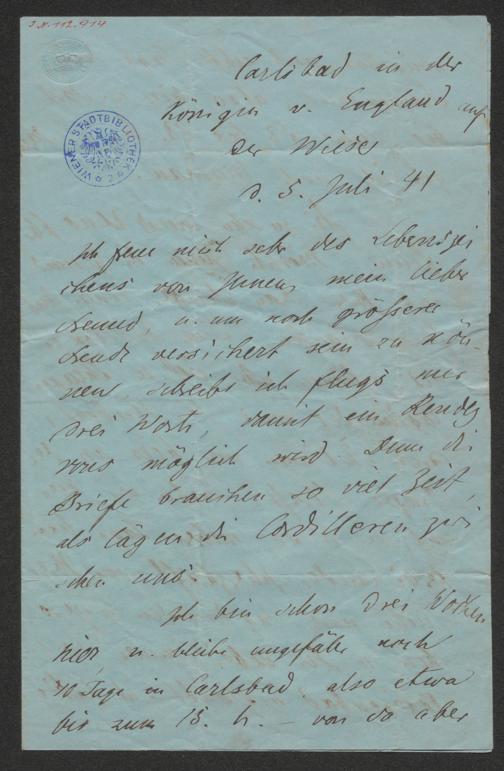 J.N. 112.914
WIENER STADTBIBLIOTHEK
Carlsbad in der
Königin v. England auf
der Wiese
d. 5. Juli 41
Ich freue mich sehr des Lebenszei
chens von Ihnen, mein lieber
Freund, u. um noch größerer
Freude versichert sein zu kön-
nen, schreibe ich flugs nur
drei Worte, damit ein Rendez
vous möglich wird. Denn die
Briefe brauchen so viel Zeit,
als lägen die Cordilleren zwi
schen uns
Ich bin schon drei Wochen
hier, u. bleibe ungefähr noch
10 Tage in Carlsbad also etwa
bis zum 15. h. – von da aber